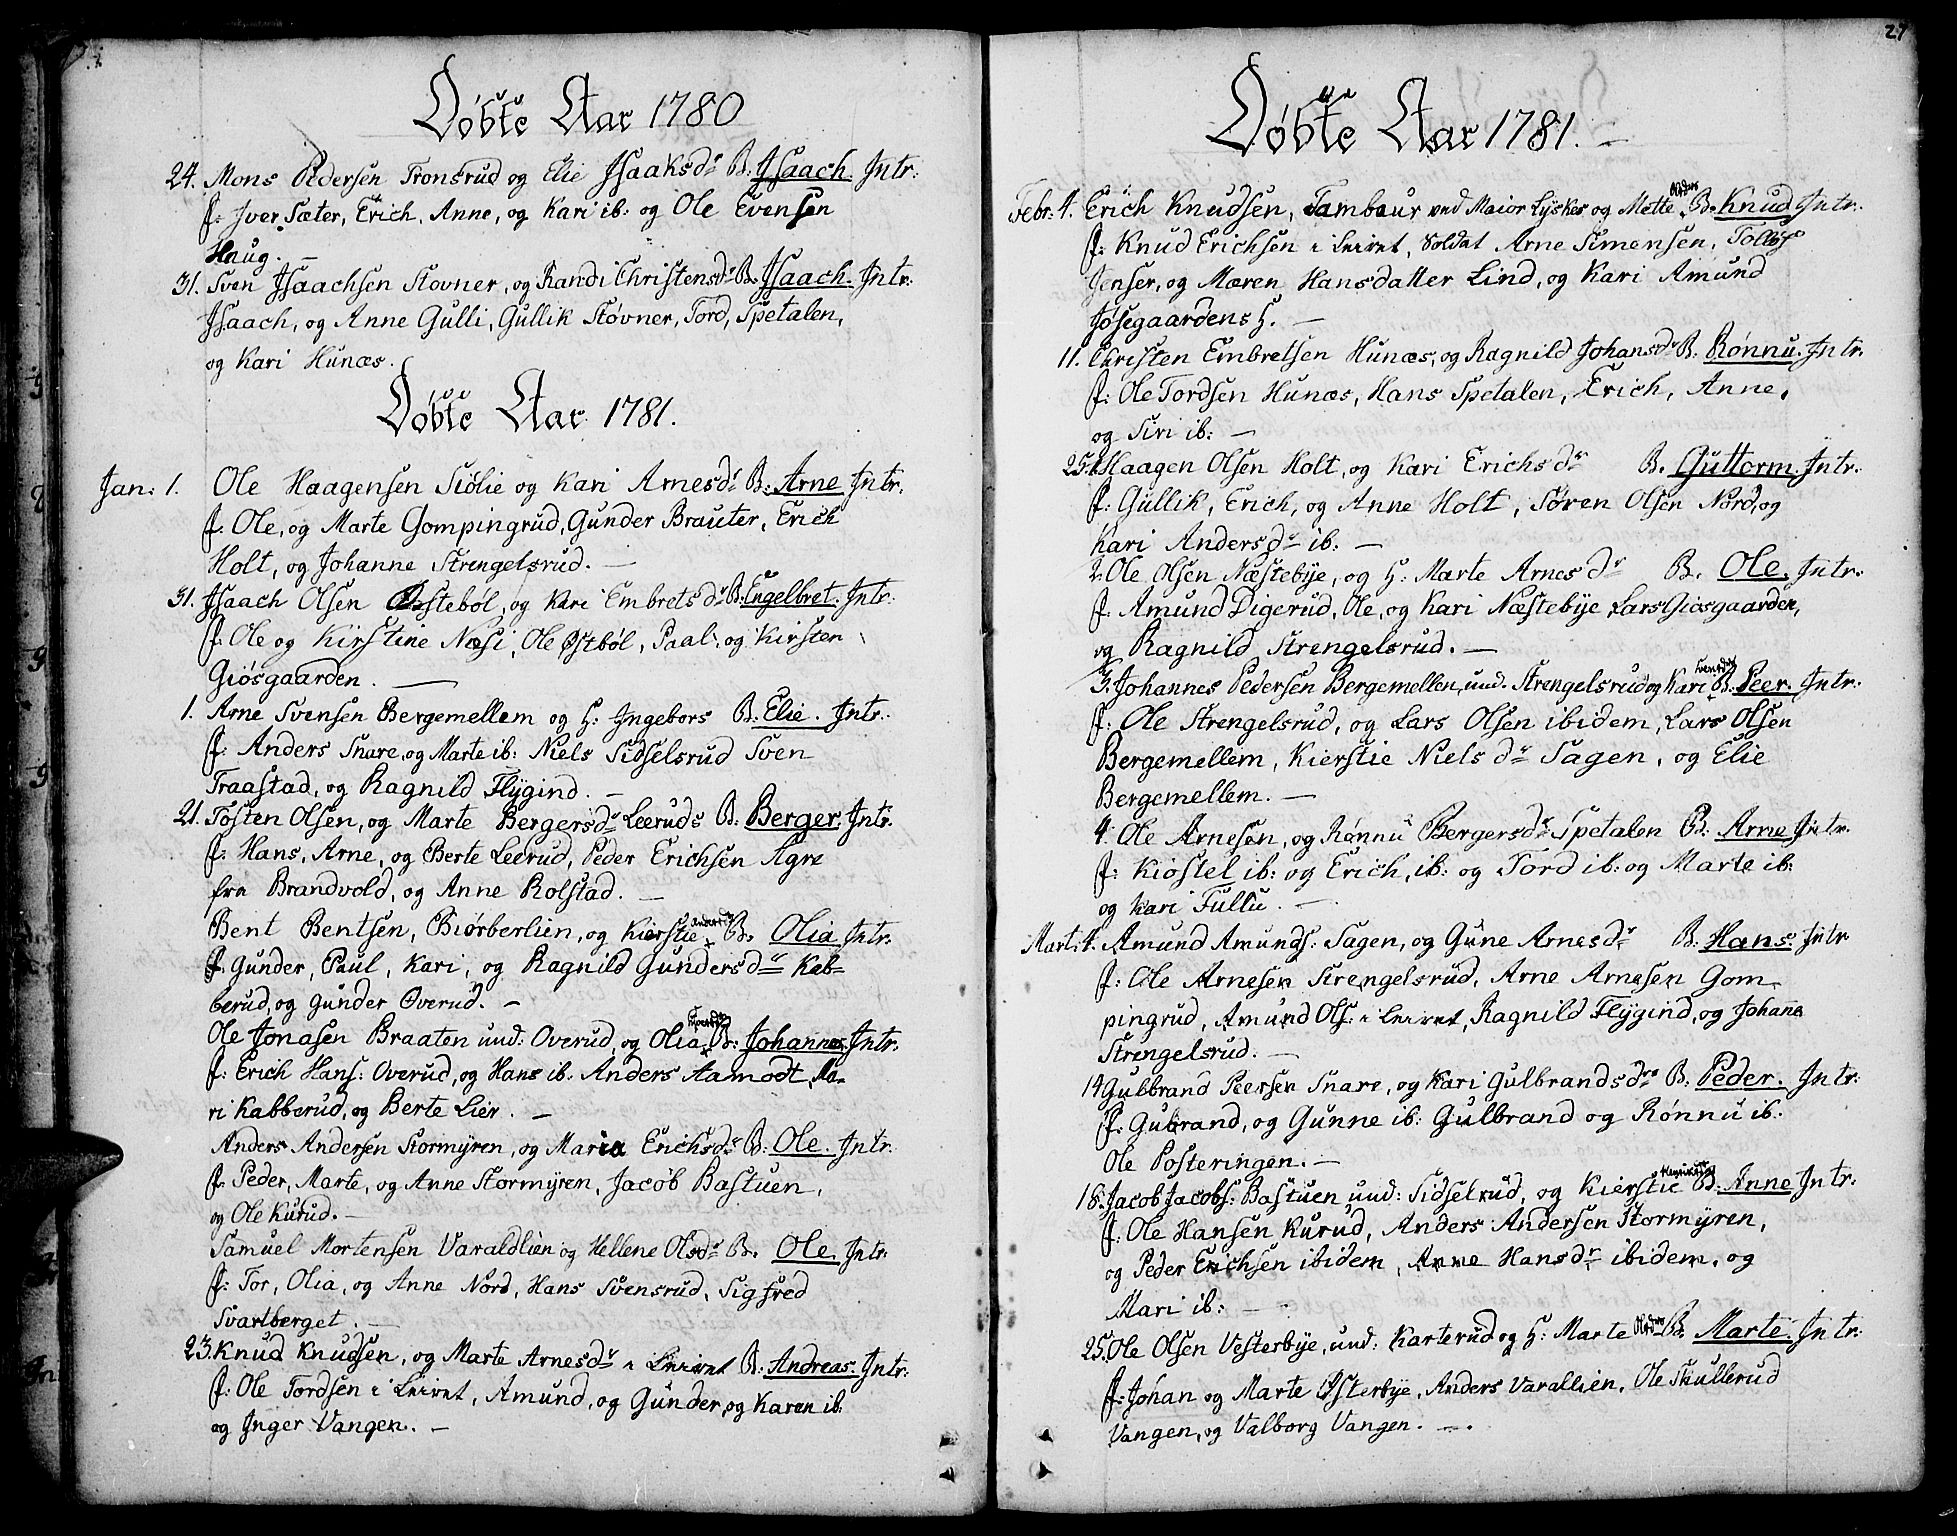 Döbte Aar 1780
24. Mons Pedersen Tronsrud og Elie Isaaksdr B: Isaach. Intr:
f: Iver Sæter, Erich, Anne, og Kari ib: og Ole Evensen
Haug. —
31. Sven Isaachsen Stovner, og Randi Christensdr B. Isaach. Intr:
Isaach, og Anne Gulli, Gullik Stövner, Tord, Spetalen,
og Kari Hunæs.
Döbte Aar 1781.
Jan: 1. Ole Haagensen Siölie og Kari Arnesdr B: Arne Intr.
f: Ole, og Marte Gompingrud, Gunder Brauter, Erich
Holt, og Johanne Strengelsrud. —
31. Isaach Olsen Østeböl, og Kari Embretsdr B. Engelbret. Intr:
f: Ole og Kirstine Næsi, Ole Østböl, Paal, og Kirsten
Giösgaarden. —
1. Arne Svensen Bergemellem og H: Ingebors B: Elie. Intr:
f: Anders Snare, og Marte ib: Niels Sidselsrud Sven
Traastad, og Ragnild Flygind. —
21. Tosten Olsen, og Marte Bergersdr Leeruds B: Berger. Intr.
f: Hans, Arne, og Berte Leerud, Peder Erichsen Agre
fra Brandvold, og Anne Rolstad. —
Bent Bentsen, Biörberlien, og Kierstie Andersdr B. Olia Intr.
f. Gunder, Paul, Kari, og Ragnild Gundersdr Kab=
berud, og Gunder Overud. —
Ole Jonasen Braaten und: Overud, og Olia B: Johannes Intr:
f: Erich Hans: Overud, og Hans ib: Anders Aamodt, Ma=
ri Kabberud, og Berte Lier. —
Anders Andersen Stormyren, og Maria Erichsdr B: Ole. Intr:
f: Peder, Marte, og Anne Stormyren, Jacob Bastuen,
og Ole Kurud. —
Samuel Mortensen Varaldlien og Hellene Olsdr B. Ole. Intr.
f: Tor, Olia, og Anne Nord, Hans Svensrud, Sigfred
Svartberget. —
23. Knud Knudsen, og Marte Arnesdr i Leiret B: Andreas. Intr:
f: Ole Tordsen i Leiret, Amund, og Gunder, og Karen ib.
og Inger Vangen. —
27
Döbte Aar 1781. —
Febr: 4. Erich Knudsen, Tambour ved Maior Lyskes og Mette B. Knud Intr:
f: Knud Erichsen i Leiret, Soldat Arne Simensen,
Jenser, og Maren Hansdatter Lind, og Kari Amund
Jösegaardens H. —
11. Christen Embretsen Hunæs, og Ragnild Johansdr B. Rönnu. Intr.
f: Ole Tordsen Hunæs, Hans Spetalen, Erich, Anne,
og Siri ib: —
25. Haagen Olsen Holt, og Kari Erichsdr B. Guttorm. Intr.
f: Gullik, Erich, og Anne Holt, Sören Olsen Nord, og
Kari Andersdr ib: —
2. Ole Olsen Næstebye, og H: Marte Arnesdr B. Ole. Intr:
f. Amund Digerud, Ole, og Kari Næstebye Lars Giosgaarden,
og Ragnild Strengelsrud. —
3. Johannes Pedersen Bergemellen, und. Strengelsrud og Kari Svensdr B. Peer. Intr:
f: Ole Strengelsrud, og Lars Olsen ibidem, Lars Olsen
Bergemellem, Kierstie Nielsdr Sagen, og Elie
Bergemellem. —
4. Ole Arnesen, og Rönnu Bergersdr Spetalen B. Arne Intr.
f: Kiöstel ib: og Erich, ib: og Tord ib: og Marte ib:
og Kari Fullu. —
Marti: 4. Amund Amunds: Sagen, og Gune Arnesdr B. Hans. Intr
f: Ole Arnesen Strengelsrud, Arne Arnesen Gom=
pingrud, Amund Ols: i Leiret, Ragnild Flygind, og Johane
Strengelsrud. —
14 Gulbrand Peersen Snare, og Kari Gulbrandsdr B. Peder. Intr:
f: Gubrand, og Gunne ib: Gulbrand og Rönnu ib:
Ole Posteringen. —
18. Jacob Jacobs: Bastuen und: Sidselrud, og Kierstie B. Anne Intr:
f: Ole Hansen Kurud, Anders Andersen Stormyren,
og Peder Erichsen ibidem, Anne Hansdr ibidem, og
Mari ib: —
25. Ole Olsen Vesterbye, und: Karterud og H: Marte B. Marte. Intr:
f: Johan og Marte Østerbye, Anders Varallien, Ole Skullerud
Vangen, og Valborg Vangen. —